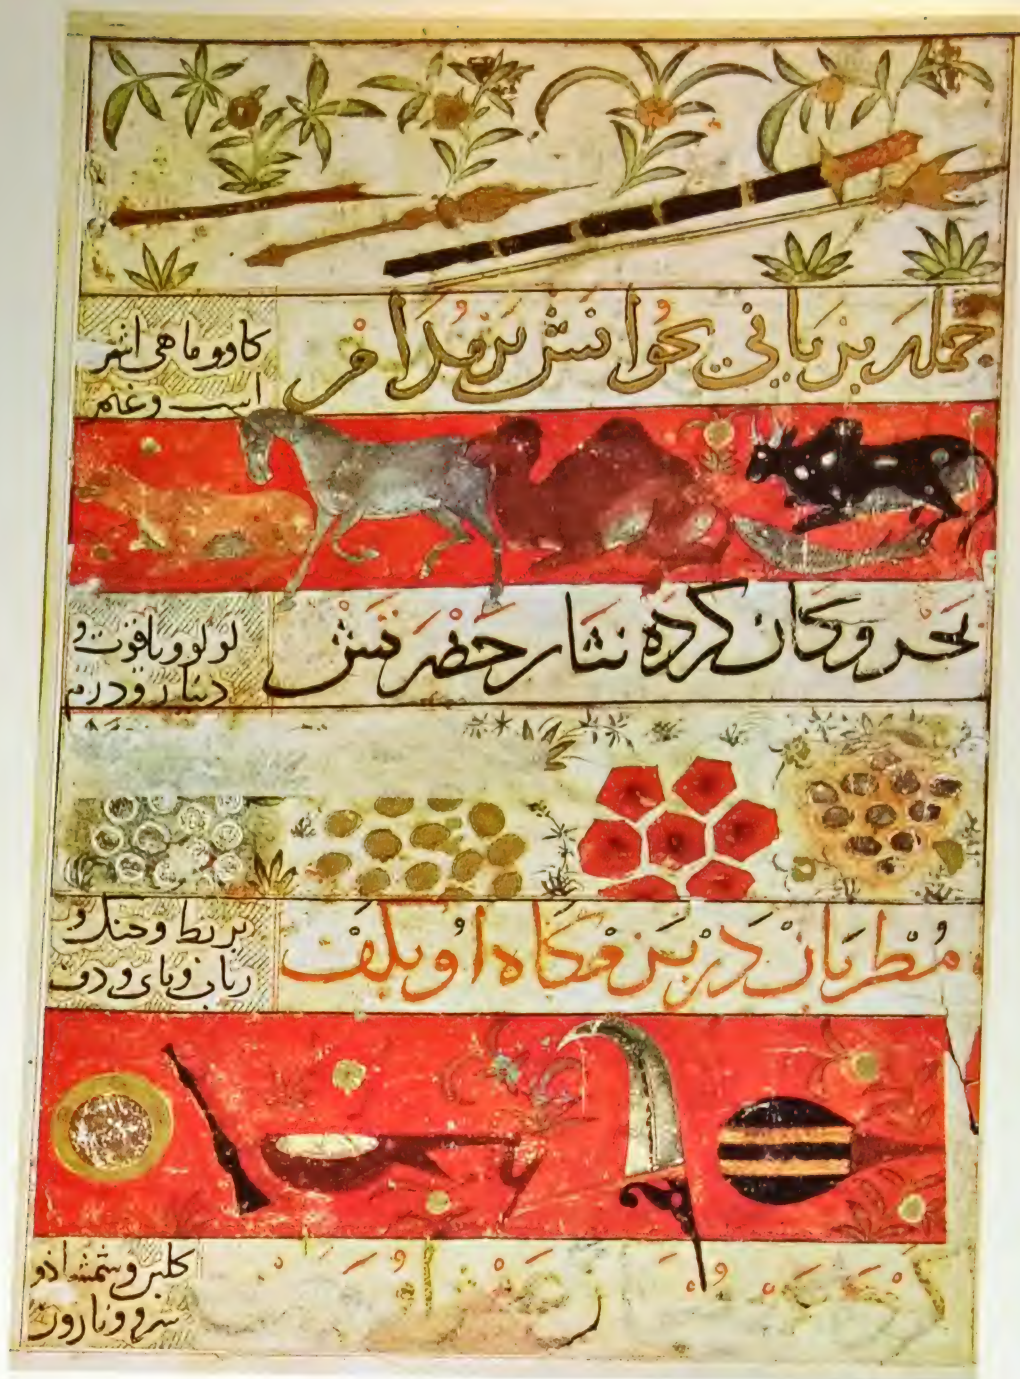 جمله بریانی بخوانش بر مدام
کاو و ماهی اشتر
اسب و غنم
بحر و کان کرده نثار حضرتش
لولو و یاقوت و
دینار و درم
مطربان در بزمکاه او بکف
بربط و جنك و
رباب و نای و دف
کلبن و شمشاد و
سرو و نارون